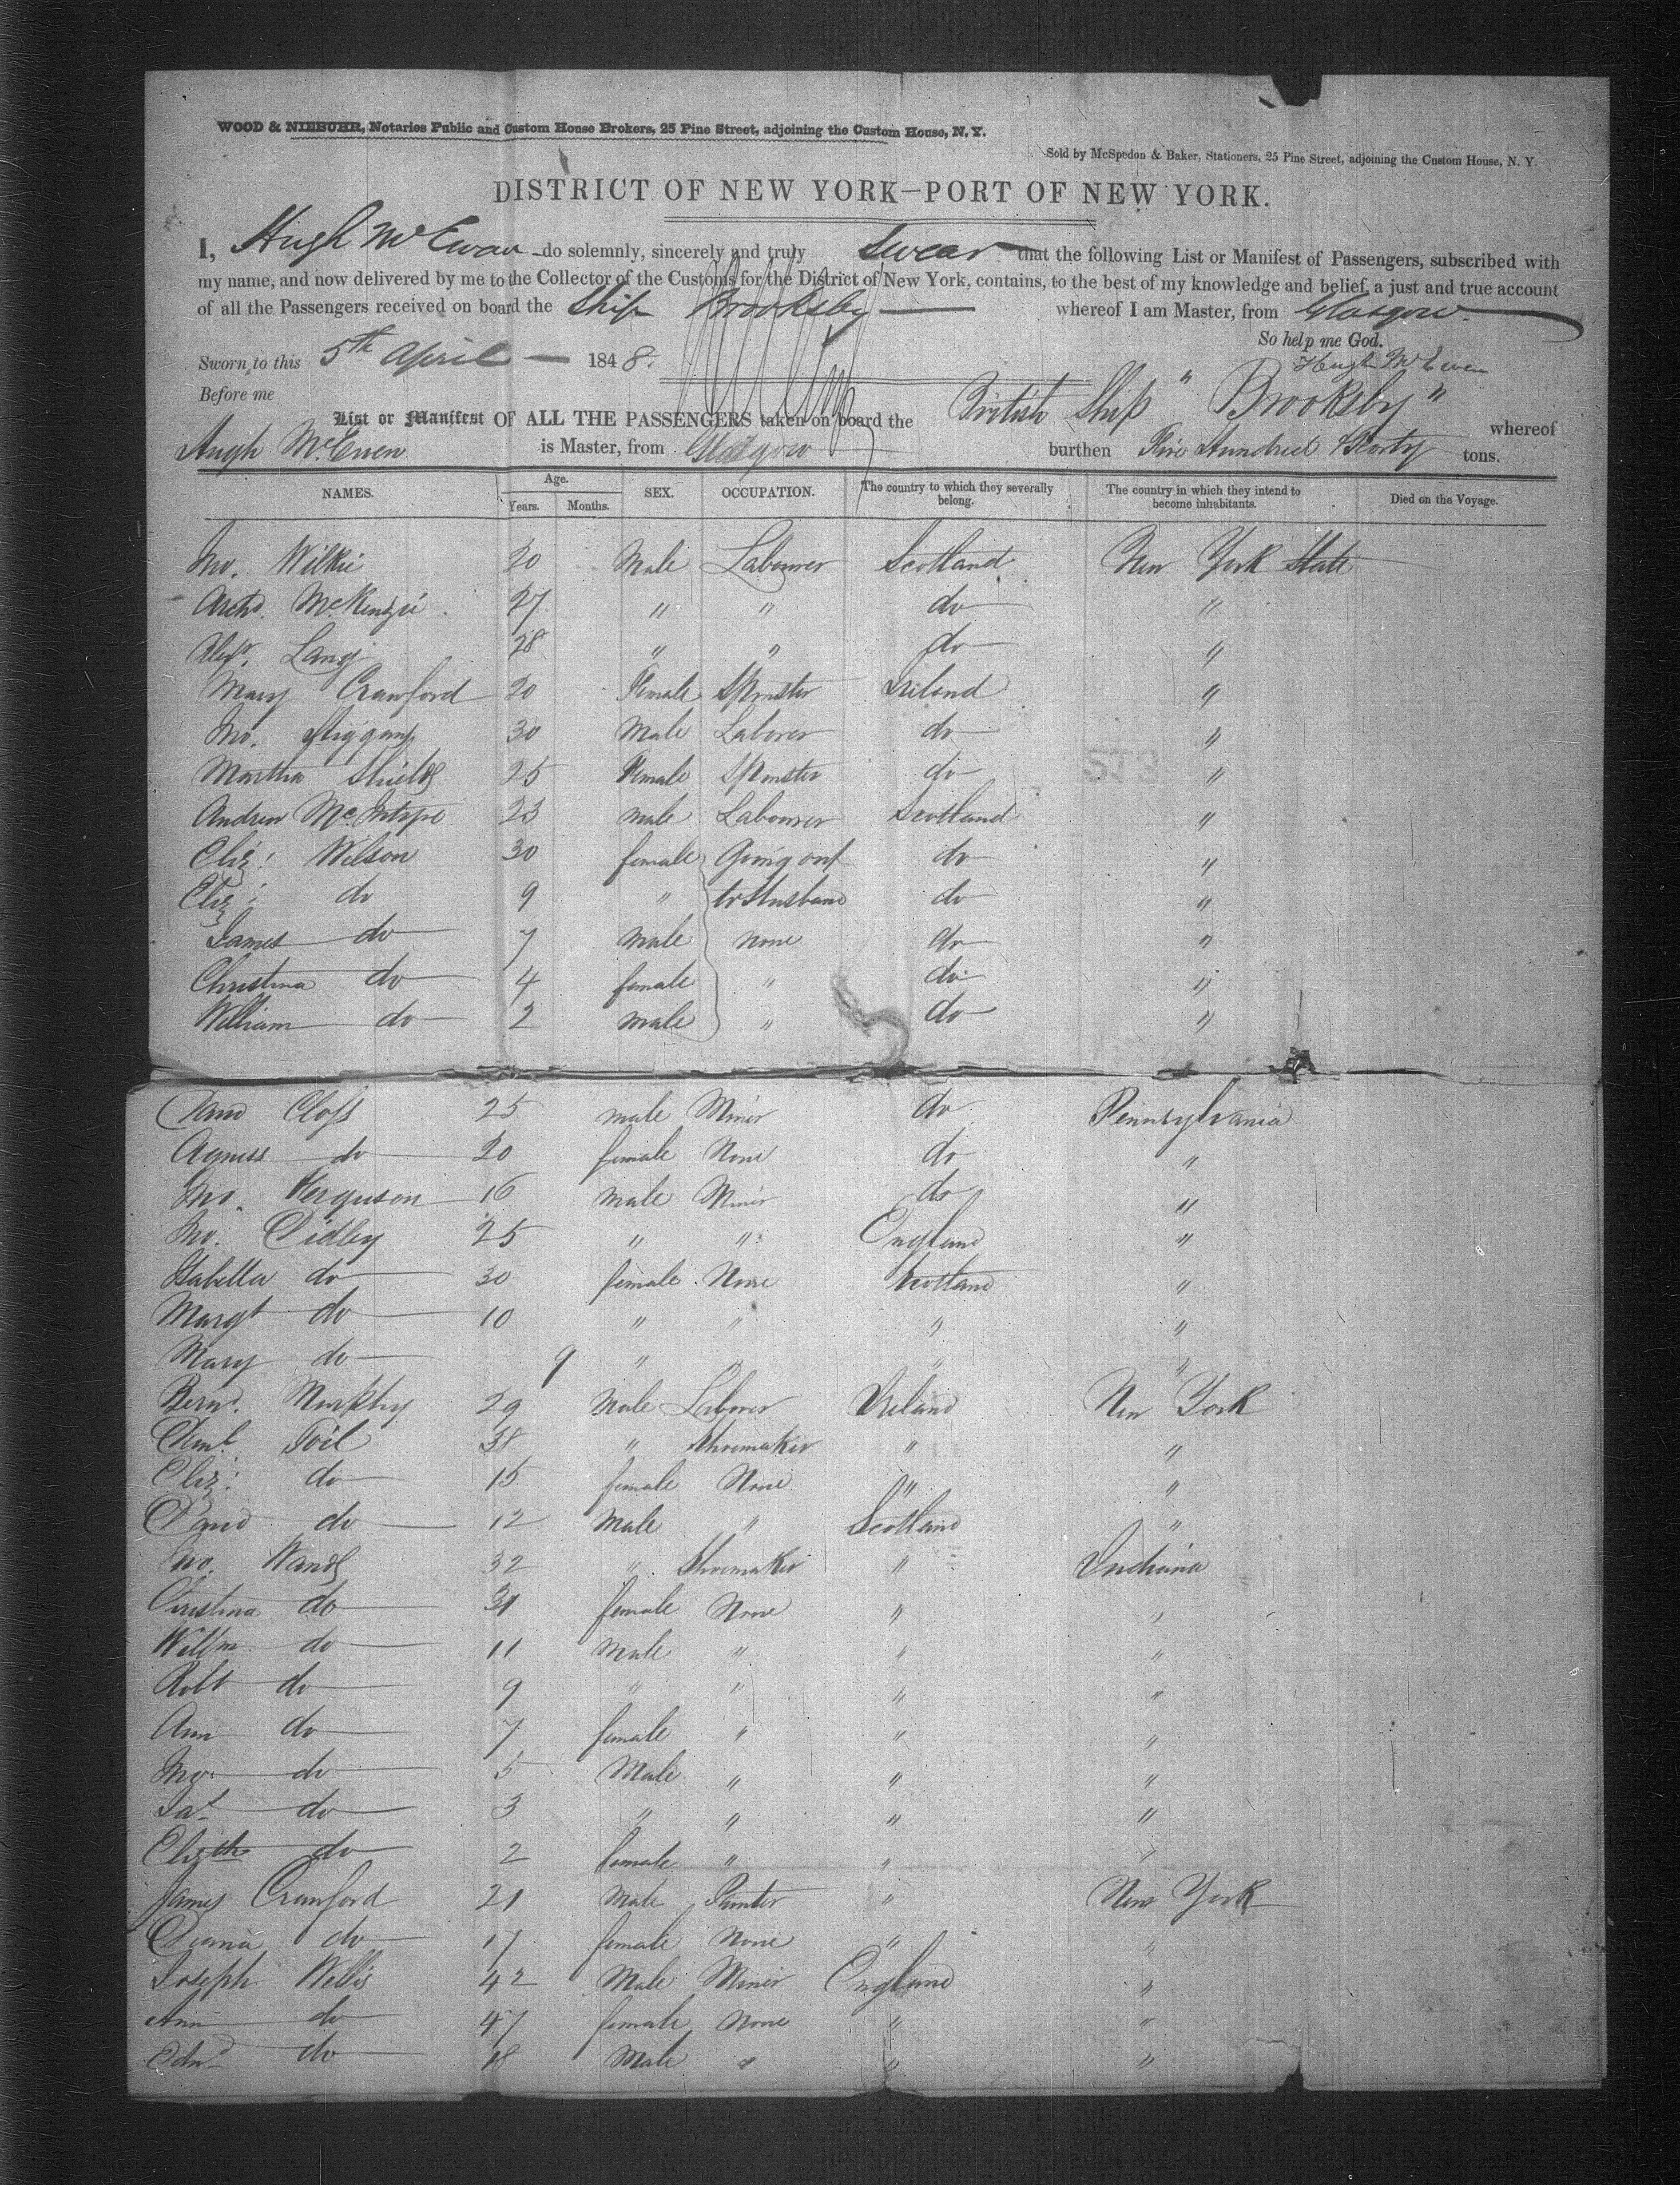 WOOD & NIEBUHR, Notaries Public and Custom House Brokers, 25 Pine Street, adjoining the Custom House, N. Y.
Sold by McSpedon & Baker, Stationers, 25 Pine Street, adjoining the Custom House, N. Y.
DISTRICT OF NEW YORK—PORT OF NEW YORK.
I, Hugh McEwan do solemnly, sincerely and truly Swear that the following List or Manifest of Passengers, subscribed with
my name, and now delivered by me to the Collector of the Customs for the District of New York, contains, to the best of my knowledge and belief, a just and true account
of all the Passengers received on board the Ship Brooksby whereof I am Master, from Glasgow.
So help me God.
Sworn to this 5th April 1848. Hugh McEwan
Before me
List or Manifest OF ALL THE PASSENGERS taken on board the British Ship "Brooksby" whereof
Hugh McEuen is Master, from Glasgow burthen Five Hundred & Forty tons.
NAMES. Age. Years. Months. SEX. OCCUPATION. The country to which they severally belong. The country in which they intend to become inhabitants. Died on the Voyage.
Jno. Wilkie 20 Male Labourer Scotland New York State
Archd. McKenzie 27 " " do "
Alexr. Lang 28 " " do "
Mary Crawford 20 Female Spinster Ireland "
Jno. 30 Male Laborer do "
Martha Shields 25 Female Spinster do "
Andrew McIntyre 23 male Labourer Scotland "
Eliz: Wilson 30 female Going out do "
Eliz: do 9 " to Husband do "
James do 7 male none do "
Christina do 4 female " do "
William do 2 male " do "
Closs 25 male Miner do Pennsylvania
Agness do 20 female None do "
Jno. Ferguson 16 male Miner do "
Jno. Didley 25 " " England "
Isabella do 30 female None Scotland "
Margt do 10 " " " "
Mary do 9 " " " "
Bernd. Murphy 29 Male Laborer Ireland New York
38 " Shoemaker " "
Eliz: do 15 female None " "
David do 12 Male " Scotland "
Jno. Wands 32 " Shoemaker " Indiana
Christina do 31 female None " "
Willm. do 11 male " " "
Robt do 9 " " " "
Ann do 7 female " " "
Jno. do 5 Male " " "
Jas do 3 " " " "
Elizth do 2 female " " "
James Crawford 21 Male Painter " New York
do 17 female None " "
Joseph Willis 42 Male Miner England "
Ann do 47 female None " "
Edwd do 18 Male " " "